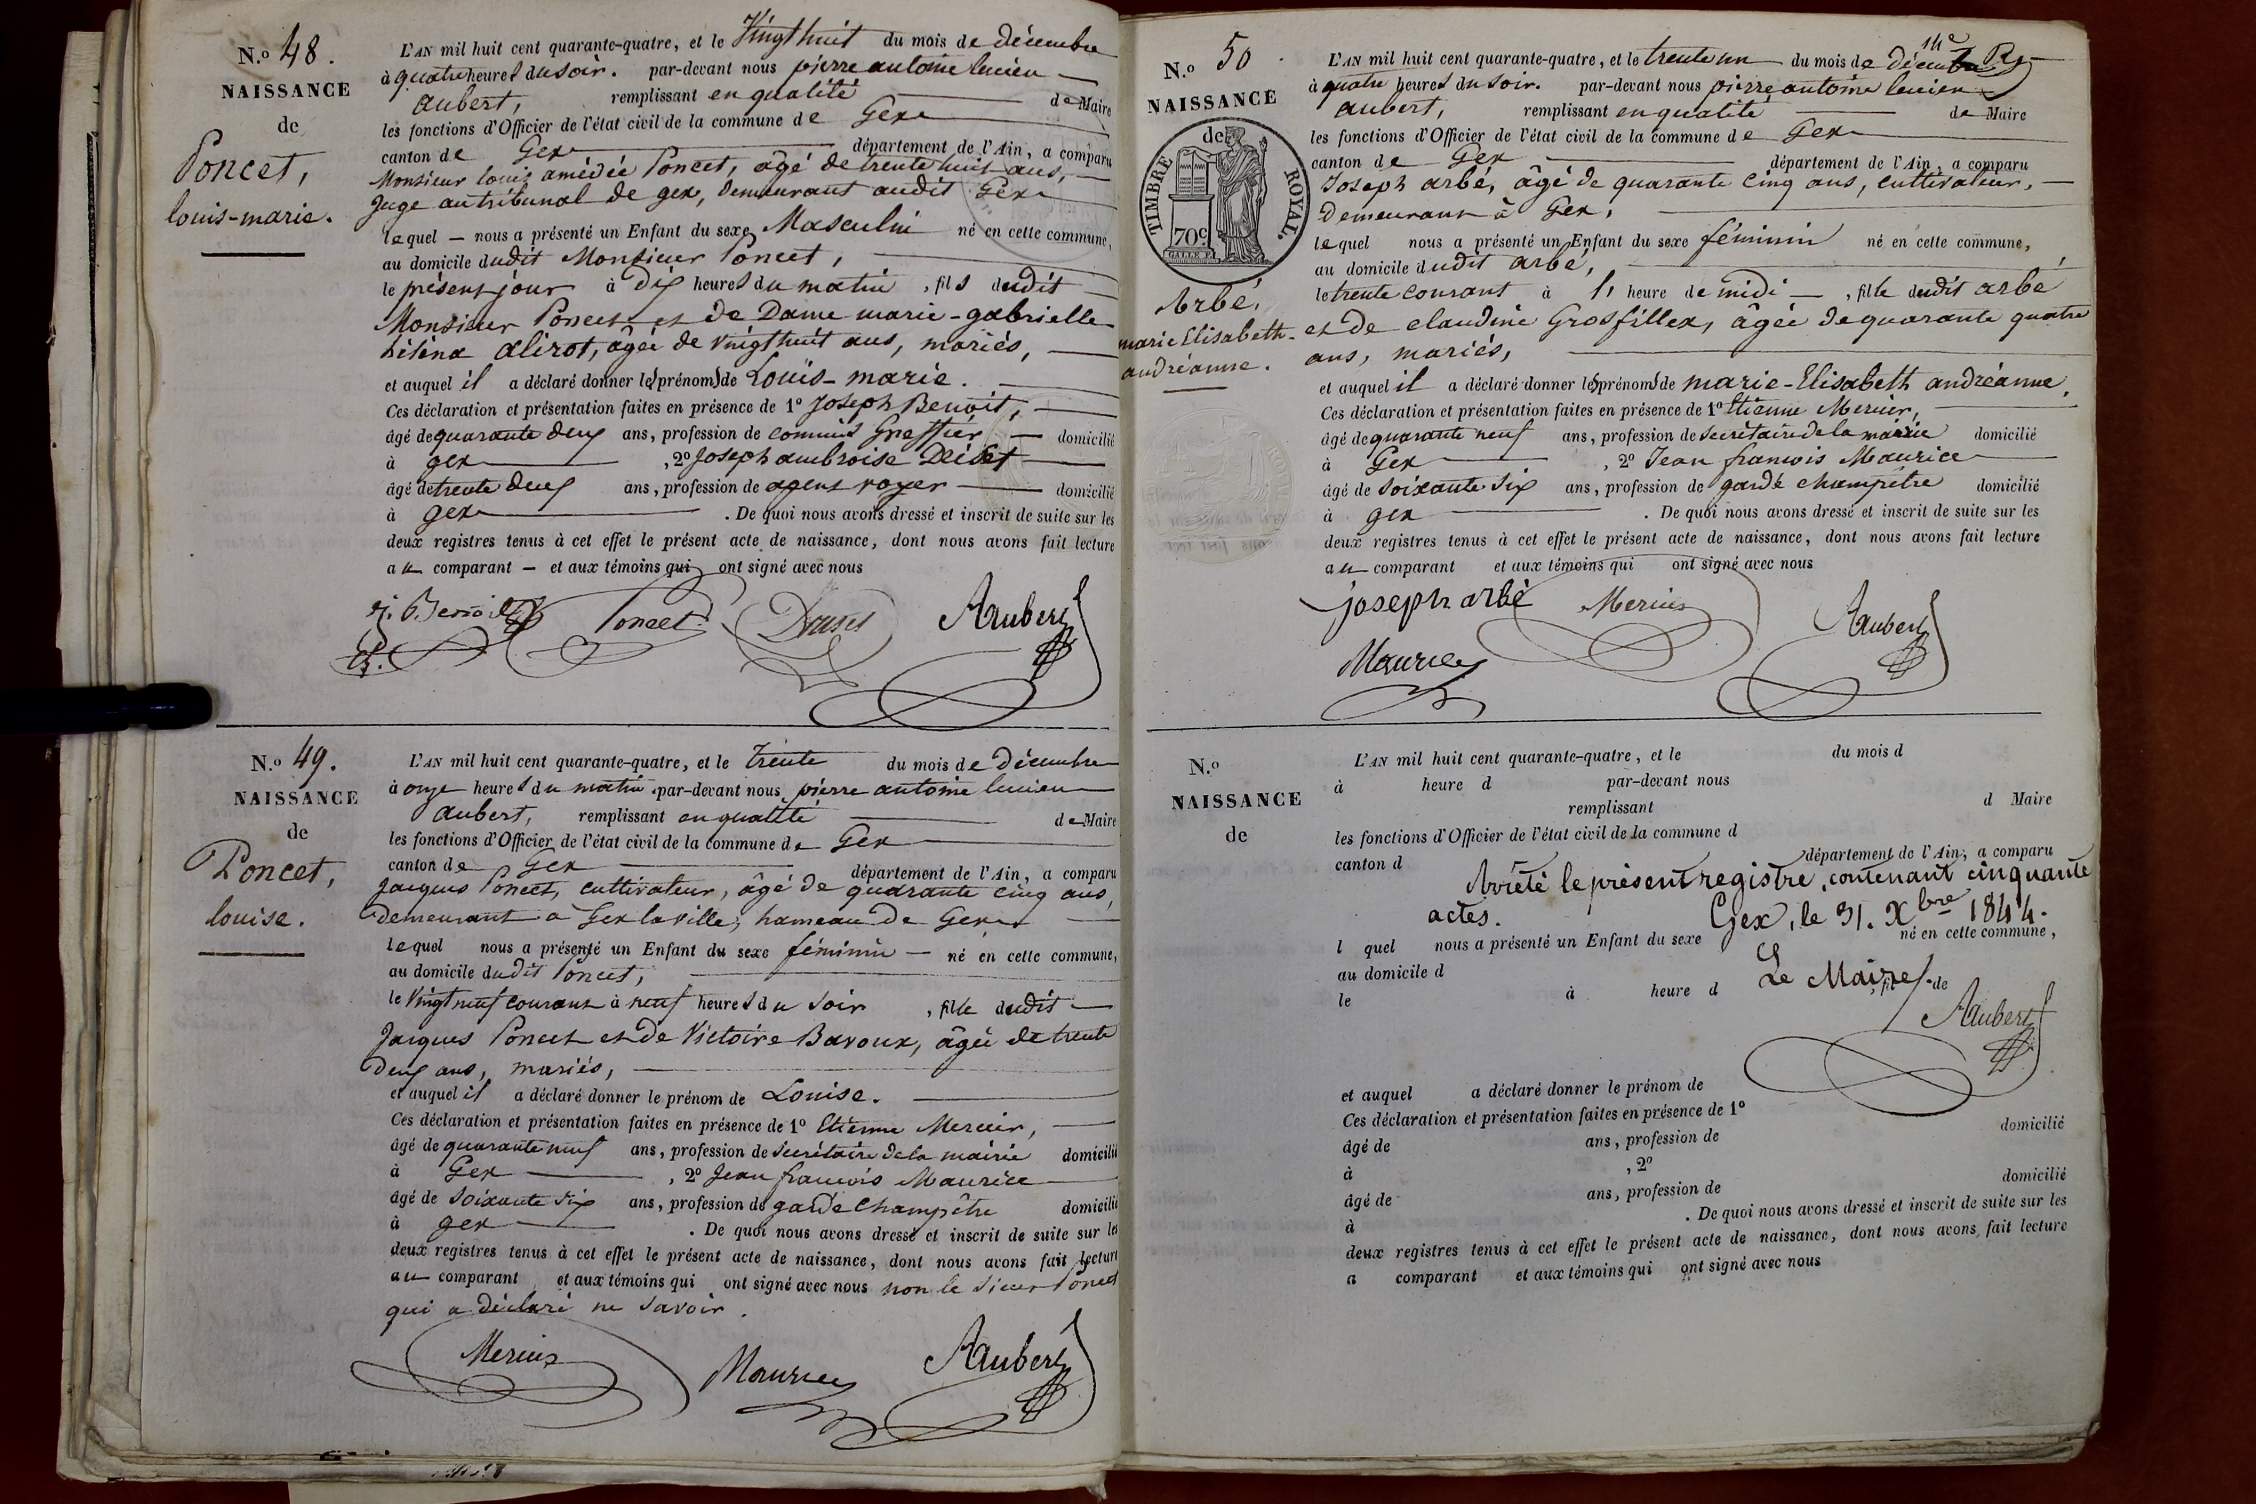 N.º 48.
NAISSANCE
de
Poncet,
louis-marie.
L'AN mil huit cent quarante-quatre, et le Vingt huit du mois de décembre
à quatre heures du soir. par-devant nous pierre antoine lucien
aubert, remplissant en qualité de Maire
les fonctions d'Officier de l'état civil de la commune de Gex
canton de Gex département de l'Ain, a comparu
Monsieur louis amédée Poncet, âgé de trente huit ans,
Juge au tribunal de gex, demeurant audit Gex
lequel nous a présenté un Enfant du sexe Masculin né en cette commune,
au domicile dudit Monsieur Poncet,
le présent jour à dix heures du matin, fils dudit
Monsieur Poncet et de Dame marie-gabrielle
héléna alirot, âgée de Vingt huit ans, mariés,
et auquel il a déclaré donner les prénoms de Louis-marie.
Ces déclaration et présentation faites en présence de 1º Joseph Benoit,
âgé de quarante deux ans, profession de commis Greffier domicilié
à gex, 2º Joseph ambroise
âgé de trente deux ans, profession de agent voyer domicilié
à gex. De quoi nous avons dressé et inscrit de suite sur les
deux registres tenus à cet effet le présent acte de naissance, dont nous avons fait lecture
au comparant et aux témoins qui ont signé avec nous
j. Benoit Poncet AAubert
N.º 49.
NAISSANCE
de
Poncet,
louise.
L'AN mil huit cent quarante-quatre, et le Trente du mois de Décembre
à onze heures du matin. par-devant nous pierre antoine lucien
aubert, remplissant en qualité de Maire
les fonctions d'Officier de l'état civil de la commune de Gex
canton de Gex département de l'Ain, a comparu
Jacques Poncet, cultivateur, âgé de quarante cinq ans,
demeurant à Gex la ville, hameau de Gex
lequel nous a présenté un Enfant du sexe féminin né en cette commune,
au domicile dudit Poncet,
le Vingt neuf courant à neuf heures du soir, fille dudit
Jacques Poncet et de Victoire Bavoux, âgée de trente
deux ans, mariés,
et auquel il a déclaré donner le prénom de Louise.
Ces déclaration et présentation faites en présence de 1º Etienne Mercier,
âgé de quarante neuf ans, profession de secrétaire de la mairie domicilié
à Gex, 2º Jean françois Maurice
âgé de soixante six ans, profession de garde champêtre domicilié
à gex. De quoi nous avons dressé et inscrit de suite sur les
deux registres tenus à cet effet le présent acte de naissance, dont nous avons fait lecture
au comparant et aux témoins qui ont signé avec nous non le sieur Poncet
qui a déclaré ne savoir.
Mercier Maurice AAubert
N.º 50
NAISSANCE
de
TIMBRE ROYAL.
70c
GALLE F.
Arbé,
marie Elisabeth-
andréanne.
14e
L'AN mil huit cent quarante-quatre, et le trente un du mois de décembre
à quatre heures du soir. par-devant nous pierre antoine lucien
aubert, remplissant en qualité de Maire
les fonctions d'Officier de l'état civil de la commune de Gex
canton de Gex département de l'Ain, a comparu
Joseph arbé, âgé de quarante cinq ans, cultivateur,
Demeurant à Gex,
lequel nous a présenté un Enfant du sexe féminin né en cette commune,
au domicile dudit arbé,
le trente courant à l' heure de midi, fille dudit arbé
et de claudine Grosfillex, âgée de quarante quatre
ans, mariés,
et auquel il a déclaré donner les prénoms de marie-Elisabeth andréanne,
Ces déclaration et présentation faites en présence de 1º Etienne Mercier,
âgé de quarante neuf ans, profession de secrétaire de la mairie domicilié
à Gex, 2º Jean françois Maurice
âgé de soixante six ans, profession de garde champêtre domicilié
à gex. De quoi nous avons dressé et inscrit de suite sur les
deux registres tenus à cet effet le présent acte de naissance, dont nous avons fait lecture
au comparant et aux témoins qui ont signé avec nous
joseph arbé Mercier AAubert
Maurice
N.º
NAISSANCE
de
L'AN mil huit cent quarante-quatre, et le du mois d
à heure d par-devant nous
remplissant d Maire
les fonctions d'Officier de l'état civil de la commune d
canton d département de l'Ain, a comparu
Arrêté le présent registre, contenant cinquante
actes. Gex, le 31. Xbre 1844.
l quel nous a présenté un Enfant du sexe né en cette commune,
au domicile d Le Maire,
le à heure d , fil de
AAubert
et auquel a déclaré donner le prénom de
Ces déclaration et présentation faites en présence de 1º
âgé de ans, profession de domicilié
à , 2º
âgé de ans, profession de domicilié
à . De quoi nous avons dressé et inscrit de suite sur les
deux registres tenus à cet effet le présent acte de naissance, dont nous avons fait lecture
a comparant et aux témoins qui ont signé avec nous